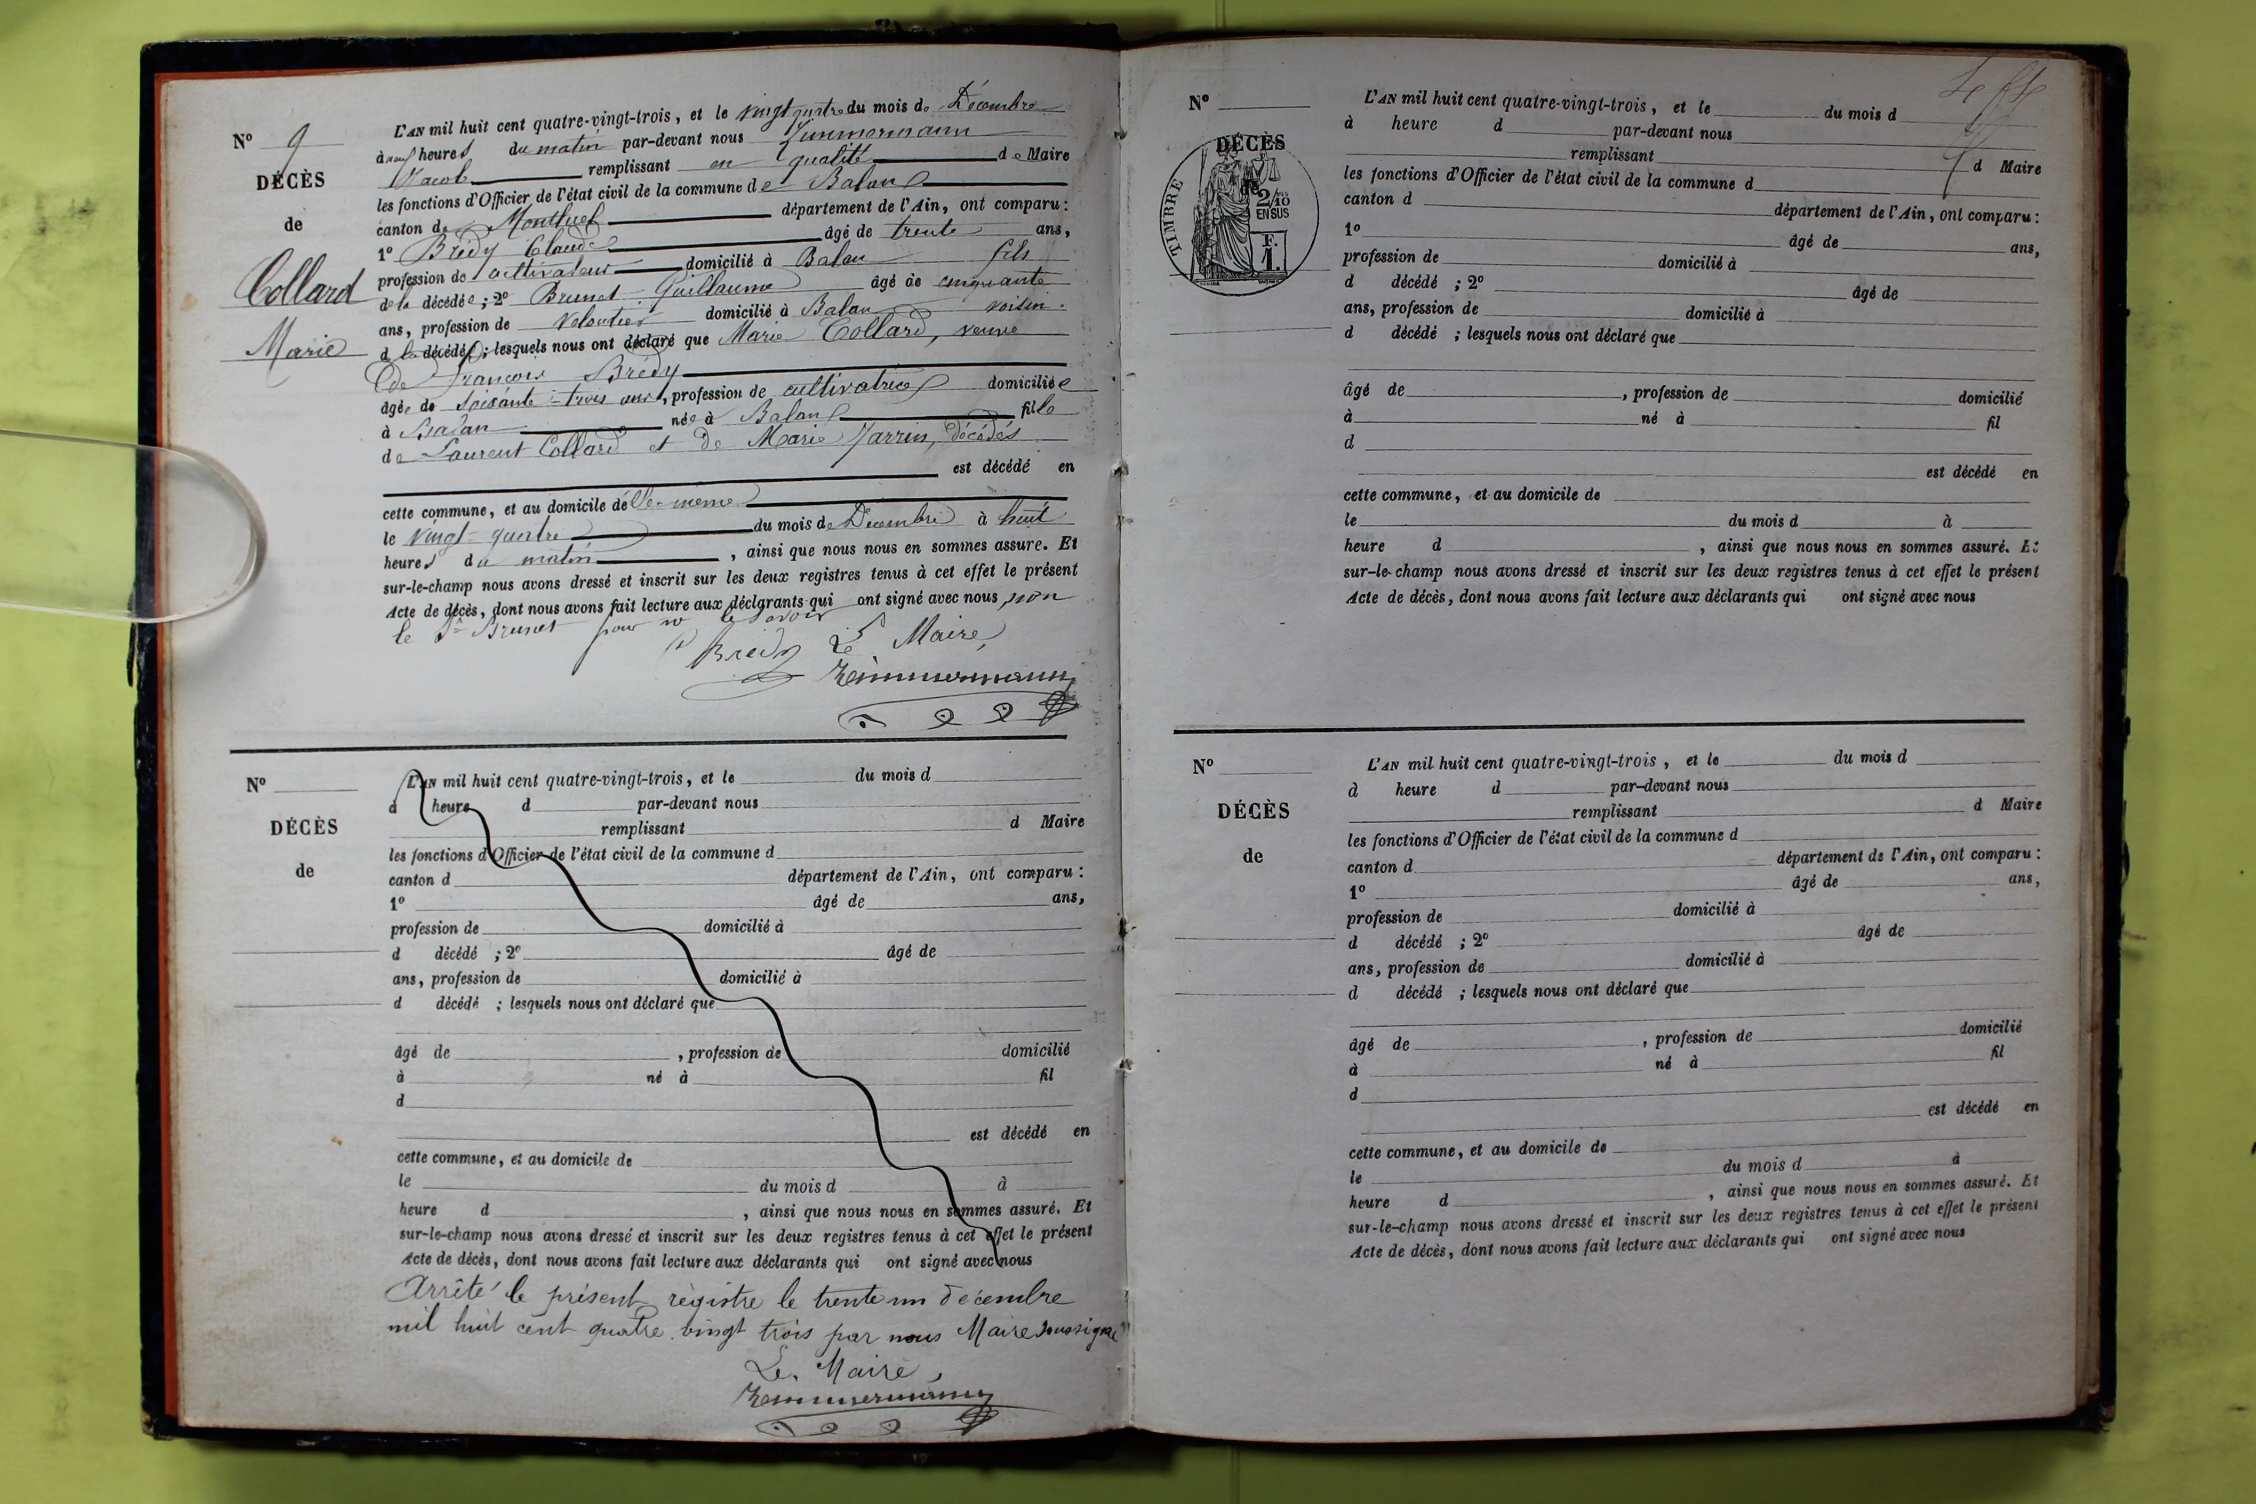 N° 9
DÉCÈS
de
Collard
Marie
L'AN mil huit cent quatre-vingt-trois, et le vingt quatre du mois de Décembre
à neuf heures du matin par-devant nous Zimmermann
Jacob remplissant en qualité de Maire
les fonctions d'Officier de l'état civil de la commune de Balan
canton de Montluel département de l'Ain, ont comparu :
1° Brédy Claude âgé de trente ans,
profession de cultivateur domicilié à Balan fils
de la décédée ; 2° Brunet Guillaume âgé de cinquante
ans, profession de domicilié à Balan voisin
d la décédé ; lesquels nous ont déclaré que Marie Collard, veuve
de François Brédy
âgée de soixante-trois ans, profession de cultivatrice domiciliée
à Balan née à Balan fille
de Laurent Collard et de Marie Jarrin, décédés
est décédé en
cette commune, et au domicile d'elle-même
le vingt-quatre du mois de Décembre à huit
heures du matin, ainsi que nous nous en sommes assuré. Et
sur-le-champ nous avons dressé et inscrit sur les deux registres tenus à cet effet le présent
Acte de décès, dont nous avons fait lecture aux déclarants qui ont signé avec nous, non
le Sr Brunet pour ne le savoir
Brédy Le Maire,
Zimmermann
N°
DÉCÈS
de
L'AN mil huit cent quatre-vingt-trois, et le du mois d
à heure d par-devant nous
remplissant d Maire
les fonctions d'Officier de l'état civil de la commune d
canton d département de l'Ain, ont comparu :
1° âgé de ans,
profession de domicilié à
d décédé ; 2° âgé de
ans, profession de domicilié à
d décédé ; lesquels nous ont déclaré que
âgé de , profession de domicilié
à né à fil
d
est décédé en
cette commune, et au domicile de
le du mois d à
heure d , ainsi que nous nous en sommes assuré. Et
sur-le-champ nous avons dressé et inscrit sur les deux registres tenus à cet effet le présent
Acte de décès, dont nous avons fait lecture aux déclarants qui ont signé avec nous
Arrêté le présent régistre le trente un décembre
mil huit cent quatre vingt trois par nous Maire soussigné
Le Maire,
Zimmermann
N°
DÉCÈS
TIMBRE
2/10
EN SUS
F.
1.
L'AN mil huit cent quatre-vingt-trois, et le du mois d
à heure d par-devant nous
remplissant d Maire
les fonctions d'Officier de l'état civil de la commune d
canton d département de l'Ain, ont comparu :
1° âgé de ans,
profession de domicilié à
d décédé ; 2° âgé de
ans, profession de domicilié à
d décédé ; lesquels nous ont déclaré que
âgé de , profession de domicilié
à né à fil
d
est décédé en
cette commune, et au domicile de
le du mois d à
heure d , ainsi que nous nous en sommes assuré. Et
sur-le-champ nous avons dressé et inscrit sur les deux registres tenus à cet effet le présent
Acte de décès, dont nous avons fait lecture aux déclarants qui ont signé avec nous
N°
DÉCÈS
de
L'AN mil huit cent quatre-vingt-trois, et le du mois d
à heure d par-devant nous
remplissant d Maire
les fonctions d'Officier de l'état civil de la commune d
canton d département de l'Ain, ont comparu :
1° âgé de ans,
profession de domicilié à
d décédé ; 2° âgé de
ans, profession de domicilié à
d décédé ; lesquels nous ont déclaré que
âgé de , profession de domicilié
à né à fil
d
est décédé en
cette commune, et au domicile de
le du mois d à
heure d , ainsi que nous nous en sommes assuré. Et
sur-le-champ nous avons dressé et inscrit sur les deux registres tenus à cet effet le présent
Acte de décès, dont nous avons fait lecture aux déclarants qui ont signé avec nous